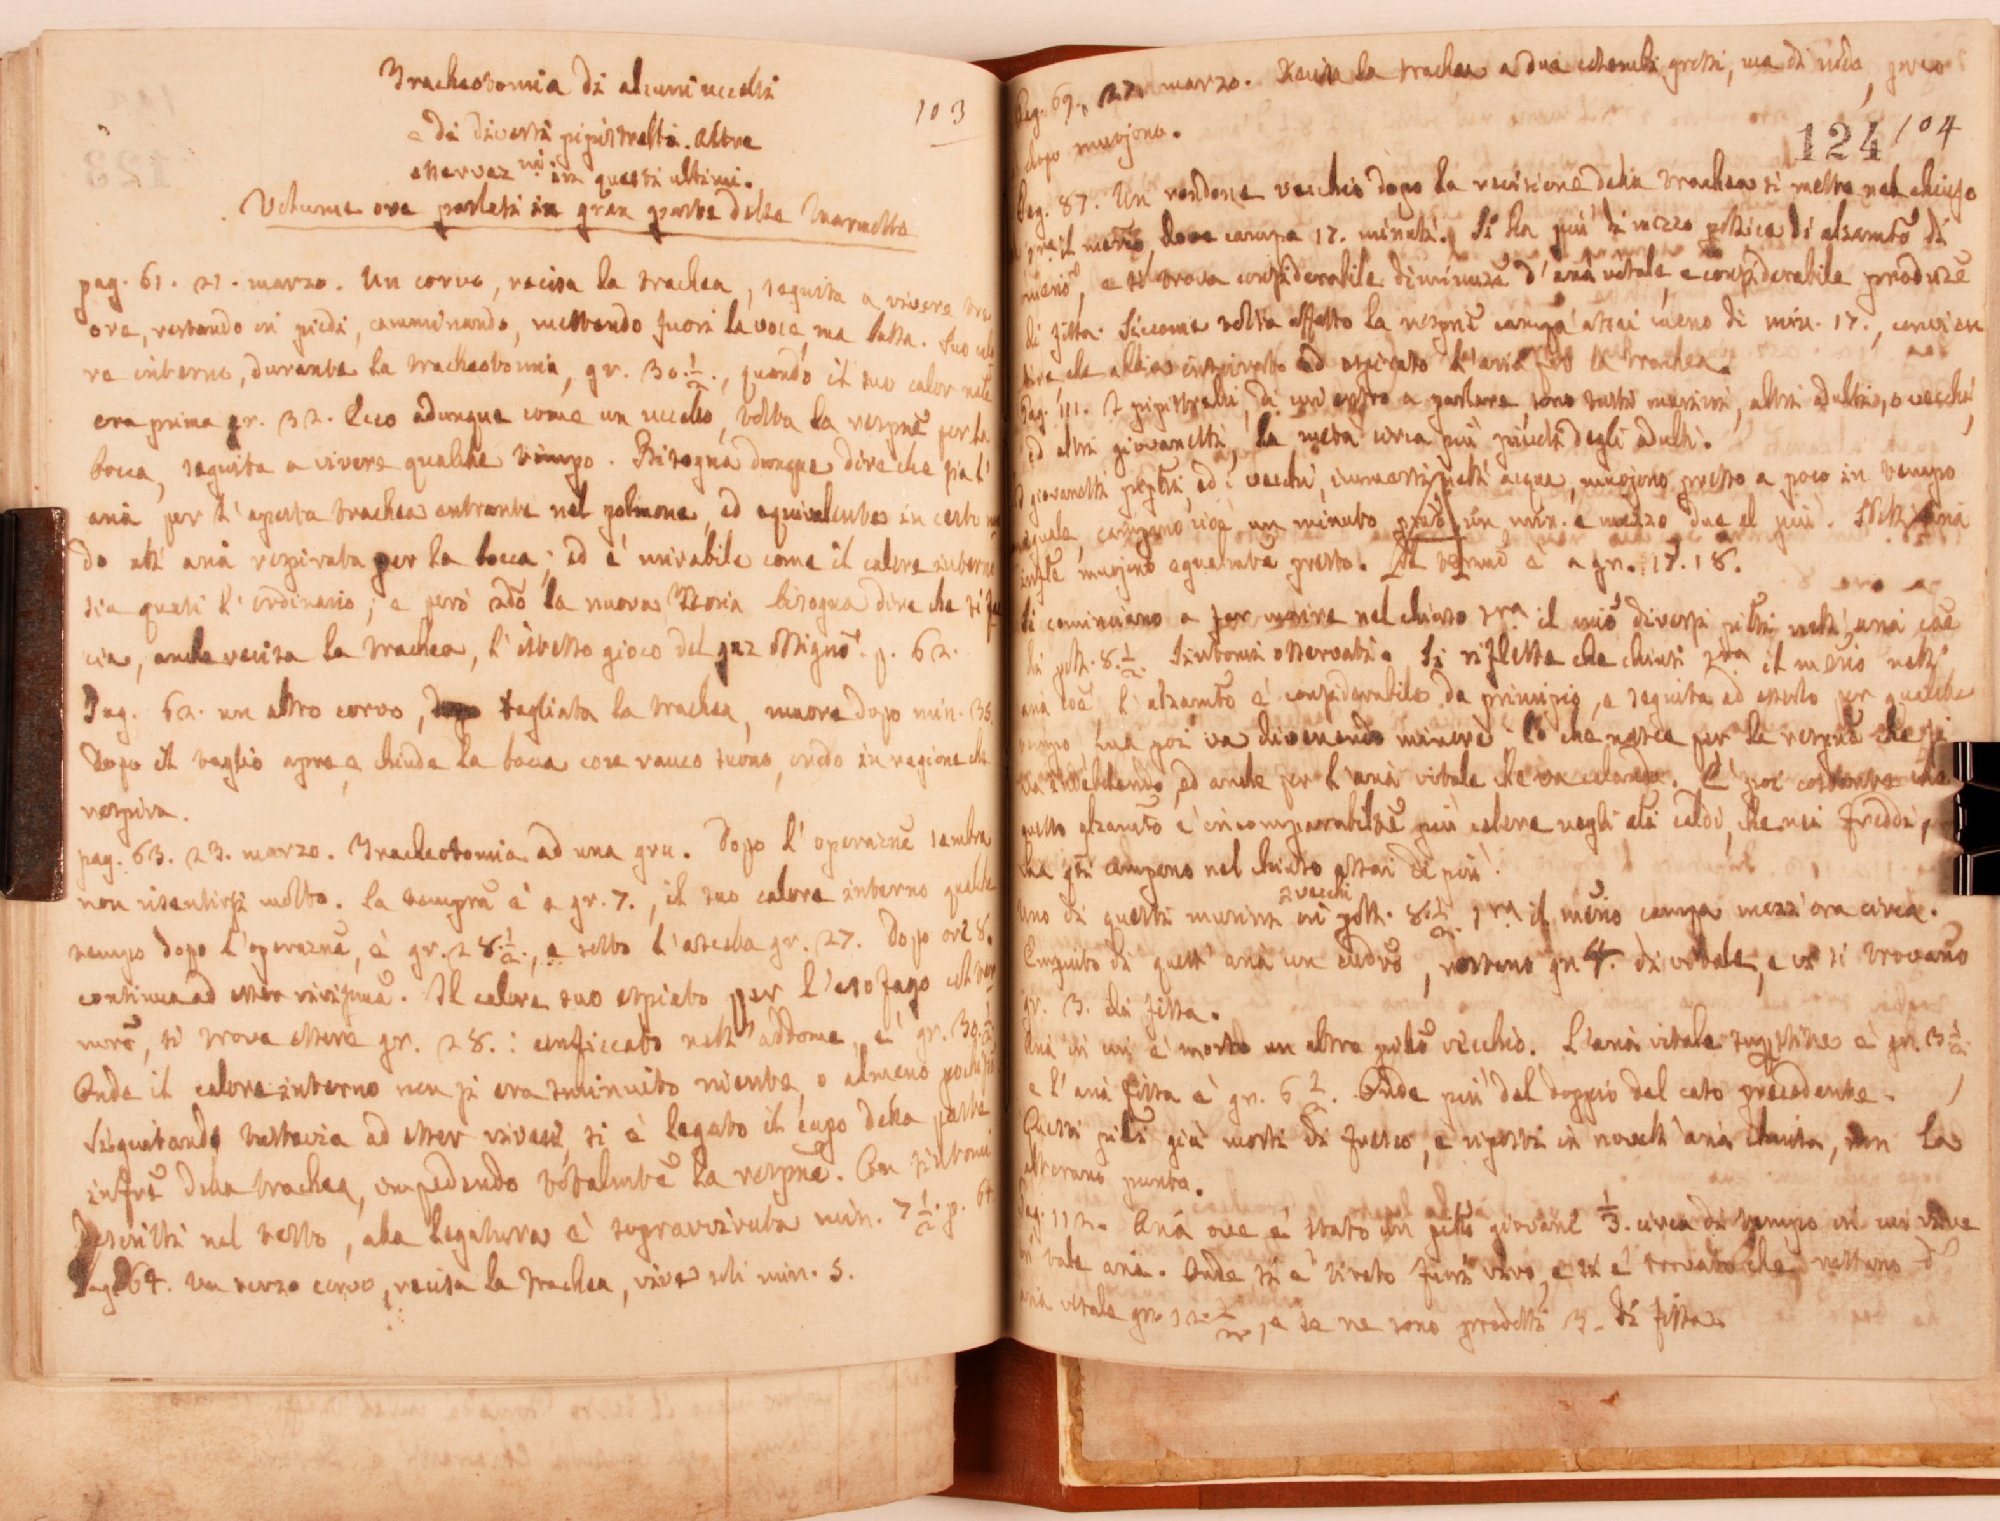 Tracheotomia di alcuni uccelli
e di diversi pipistrelli. Altre
osservaz.ni in questi ultimi.
Volume ove parlasi in gran parte delle Marmotte
103
pag. 61. 21. marzo. Un corvo, recisa la trachea, seguita a vivere tre
ore, restando in piedi, camminando, mettendo fuori la voce, ma bassa. Suo calo
re interno, durante la tracheotomia, gr. 30.½., quando il suo calor nat.le
era prima gr. 32. Ecco adunque come un uccello, tolta la respne per la
bocca, seguita a vivere qualche tempo. Bisogna dunque dire che sia l'
aria per l'aperta trachea entrante nel polmone, ed equivalente in certo mo
do all'aria respirata per la bocca; ed è mirabile come il calore interno
sia quasi l'ordinario; e però 2do la nuova Teoria bisogna dire che si fac
cia, anche recisa la trachea, l'istesso gioco del gaz ossigno. p. 62.
Pag. 62. un altro corvo, tagliata la trachea, muore dopo min. 35
Dopo il taglio apre, e chiude la bocca con rauco suono, credo in ragione che
respira.
pag. 63. 23. marzo. Tracheotomia ad una gru. Dopo l'operazne sembra
non risentirsi molto. La tempra è a gr. 7., il suo calore interno qualche
tempo dopo l'operazne, è gr. 28.½., e sotto l'ascella gr. 27. Dopo ore 8.
continua ad esser vivissima. Il calore suo espiato per l'esofago col ter
mro, si trova essere gr. 28.: conficcato nell'addome, è gr. 30.½.
Onde il calore interno non si era sminuito niente, o almeno pochissmo
Seguitando tuttavia ad esser vivace, si è legato il capo della parte
infre della trachea, impedendo totalmte la respne. Con sintomi
descritti nel testo, alla legatura è sopravvivuta min. 7½. p. 64.
Pag. 64. Un terzo corvo, recisa la trachea, vive soli min. 5.
Pag. 69. 27. marzo. Recisa la trachea a due colombi grossi, ma di nido, poco
dopo muojono.
124 104
Pag. 87. Un rondone vecchio dopo la recisione della trachea si mette nel chiuso
pra il merio dove campa 17. minuti. Si ha più di mezzo pollice di alzamto di
merio, e si trova considerabile diminuze d'aria vitale, e considerabile produze
di fissa. Siccome tolta affatto la respne campa assai meno di min. 17., convien
dire che abbia inspirato ed espirato l'aria pr la trachea.
Pag. 111. I pipistrelli, di cui entro a parlare, sono tutti murini, altri adulti, o vecchi,
ed altri giovanetti, la metà circa più piccoli degli adulti.
I giovanetti pipistri, ed i vecchi, immersi nell'acqua, muojono presso a poco in tempo
eguale, campano cioè un minuto, un min. e mezzo, due al più. Nell'aria
muojono egualmte presto. Il termro è a gr. 17. 18.
Si cominciano a far morire nel chiuso pra il mrio diversi pilli nell'aria coe
di poll. 8.½. Sintomi osservati. Si riflette che chiusi pra il merio nell'
aria coe l'alzamto è considerabile da principio, e seguita ad esserlo per qualche
tempo, ma poi va divenendo minore. Ciò che nasce per la respne che si
va indebolendo, ed anche per l'aria vitale che va calando. È poi costante che
questo alzamto è incomparabilmte più celere negli ... caldi, che nei freddi,
ma qsti campano nel chiuso assai di più.
Uno di questi murini vecchi in poll. 8.½. pra il merio campa mezz'ora circa.
Cimentato di quest'aria un cudro, restano gr. 4. di vitale, e vi si trovano
gr. 3. di fissa.
Aria in cui è morto un altro pillo vecchio. L'aria vitale superstite è gr. 3½.
e l'aria fissa è gr. 6½. Onde più del doppio del caso precedente.
Questi pilli già morti di fresco, e riposti in novell'aria chiusa, non la
alterano punto.
Pag. 112. Aria ove è stato un pillo giovane ⅓. circa di tempo in cui vive
in tale aria. Onde si è tirato fuori vivo, e si è trovato che restano di
aria vitale gr. 12.½, e se ne sono prodotti 3. di fissa.